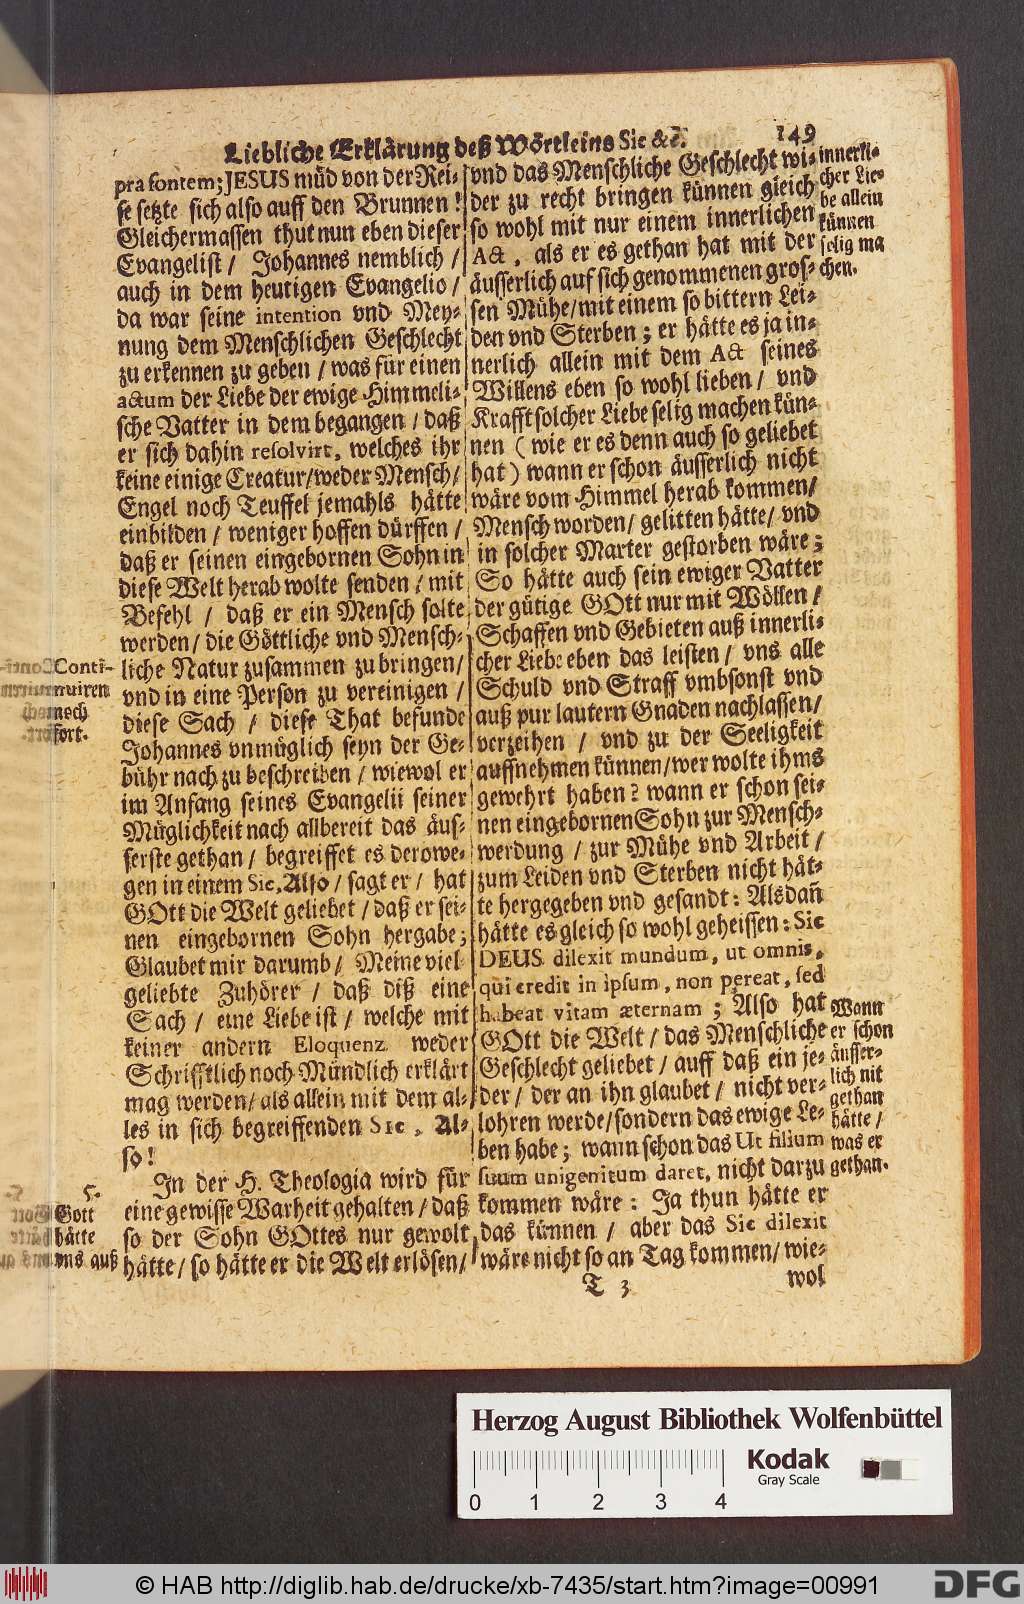 Liebliche Erklärung deß Wörtleins Sic &c. 149
pra fontem; JESUS müd von der Rei-
se setzte sich also auff den Brunnen!
Gleichermassen thut nun eben dieser
Evangelist / Johannes nemblich /
auch in dem heutigen Evangelio /
da war seine intention vnd Mey-
nung dem Menschlichen Geschlecht
zu erkennen zu geben / was für einen
actum der Liebe der ewige Himmeli-
sche Vatter in dem begangen / daß
er sich dahin resolvirt, welches ihr
keine einige Creatur / weder Mensch /
Engel noch Teuffel jemahls hätte
einbilden / weniger hoffen dürffen /
daß er seinen eingebornen Sohn in
diese Welt herab wolte senden / mit
Befehl / daß er ein Mensch solte
werden / die Göttliche vnd Mensch-
liche Natur zusammen zu bringen /
vnd in eine Person zu vereinigen /
diese Sach / diese That befunde
Johannes vnmüglich seyn der Ge-
bühr nach zu beschreiben / wiewol er
im Anfang seines Evangelii seiner
Müglichkeit nach allbereit das äus-
serste gethan / begreiffet es derowe-
gen in einem Sic, Also / sagt er / hat
GOtt die Welt geliebet / daß er sei-
nen eingebornen Sohn hergabe;
Glaubet mir darumb / Meine viel
geliebte Zuhörer / daß diß eine
Sach / eine Liebe ist / welche mit
keiner andern Eloquenz weder
Schrifftlich noch Mündlich erklärt
mag werden / als allein mit dem al-
les in sich begreiffenden Sic, Al-
so!
In der H. Theologia wird für
eine gewisse Warheit gehalten / daß
so der Sohn GOttes nur gewolt
hätte / so hätte er die Welt erlösen /
Conti-
nuiren
noch
fort.
5.
Gott
hätte
vns auß
vnd das Menschliche Geschlecht wi-
der zu recht bringen künnen gleich
so wohl mit nur einem innerlichen
Act, als er es gethan hat mit der
äusserlich auf sich genommenen gros-
sen Mühe / mit einem so bittern Lei-
den vnd Sterben; er hätte es ja in-
nerlich allein mit dem Act seines
Willens eben so wohl lieben / vnd
Krafft solcher Liebe selig machen kün-
nen (wie er es denn auch so geliebet
hat) wann er schon äusserlich nicht
wäre vom Himmel herab kommen /
Mensch worden / gelitten hätte / vnd
in solcher Marter gestorben wäre;
So hätte auch sein ewiger Vatter
der gütige GOtt nur mit Wöllen /
Schaffen vnd Gebieten auß innerli-
cher Liebe eben das leisten / vns alle
Schuld vnd Straff vmbsonst vnd
auß pur lautern Gnaden nachlassen /
verzeihen / vnd zu der Seeligkeit
auffnehmen künnen / wer wolte ihms
gewehrt haben? wann er schon sei-
nen eingebornen Sohn zur Mensch-
werdung / zur Mühe vnd Arbeit /
zum Leiden vnd Sterben nicht hät-
te hergegeben vnd gesandt: Alsdañ
hätte es gleich so wohl geheissen: Sic
DEUS dilexit mundum, ut omnis,
qui credit in ipsum, non pereat, sed
habeat vitam æternam; Also hat
GOtt die Welt / das Menschliche
Geschlecht geliebet / auff daß ein je-
der / der an ihn glaubet / nicht ver-
lohren werde / sondern das ewige Le-
ben habe; wann schon das Ut filium
suum unigenitum daret, nicht darzu
kommen wäre: Ja thun hätte er
das künnen / aber das Sic dilexit
wäre nicht so an Tag kommen / wie-
innerli-
cher Lie-
be allein
künnen
selig ma
chen.
Wann
er schon
äusser-
lich nit
gethan
hätte /
was er
gethan.
T 3 wol
Herzog August Bibliothek Wolfenbüttel
Kodak
Gray Scale
0 1 2 3 4
© HAB http://diglib.hab.de/drucke/xb-7435/start.htm?image=00991
DFG